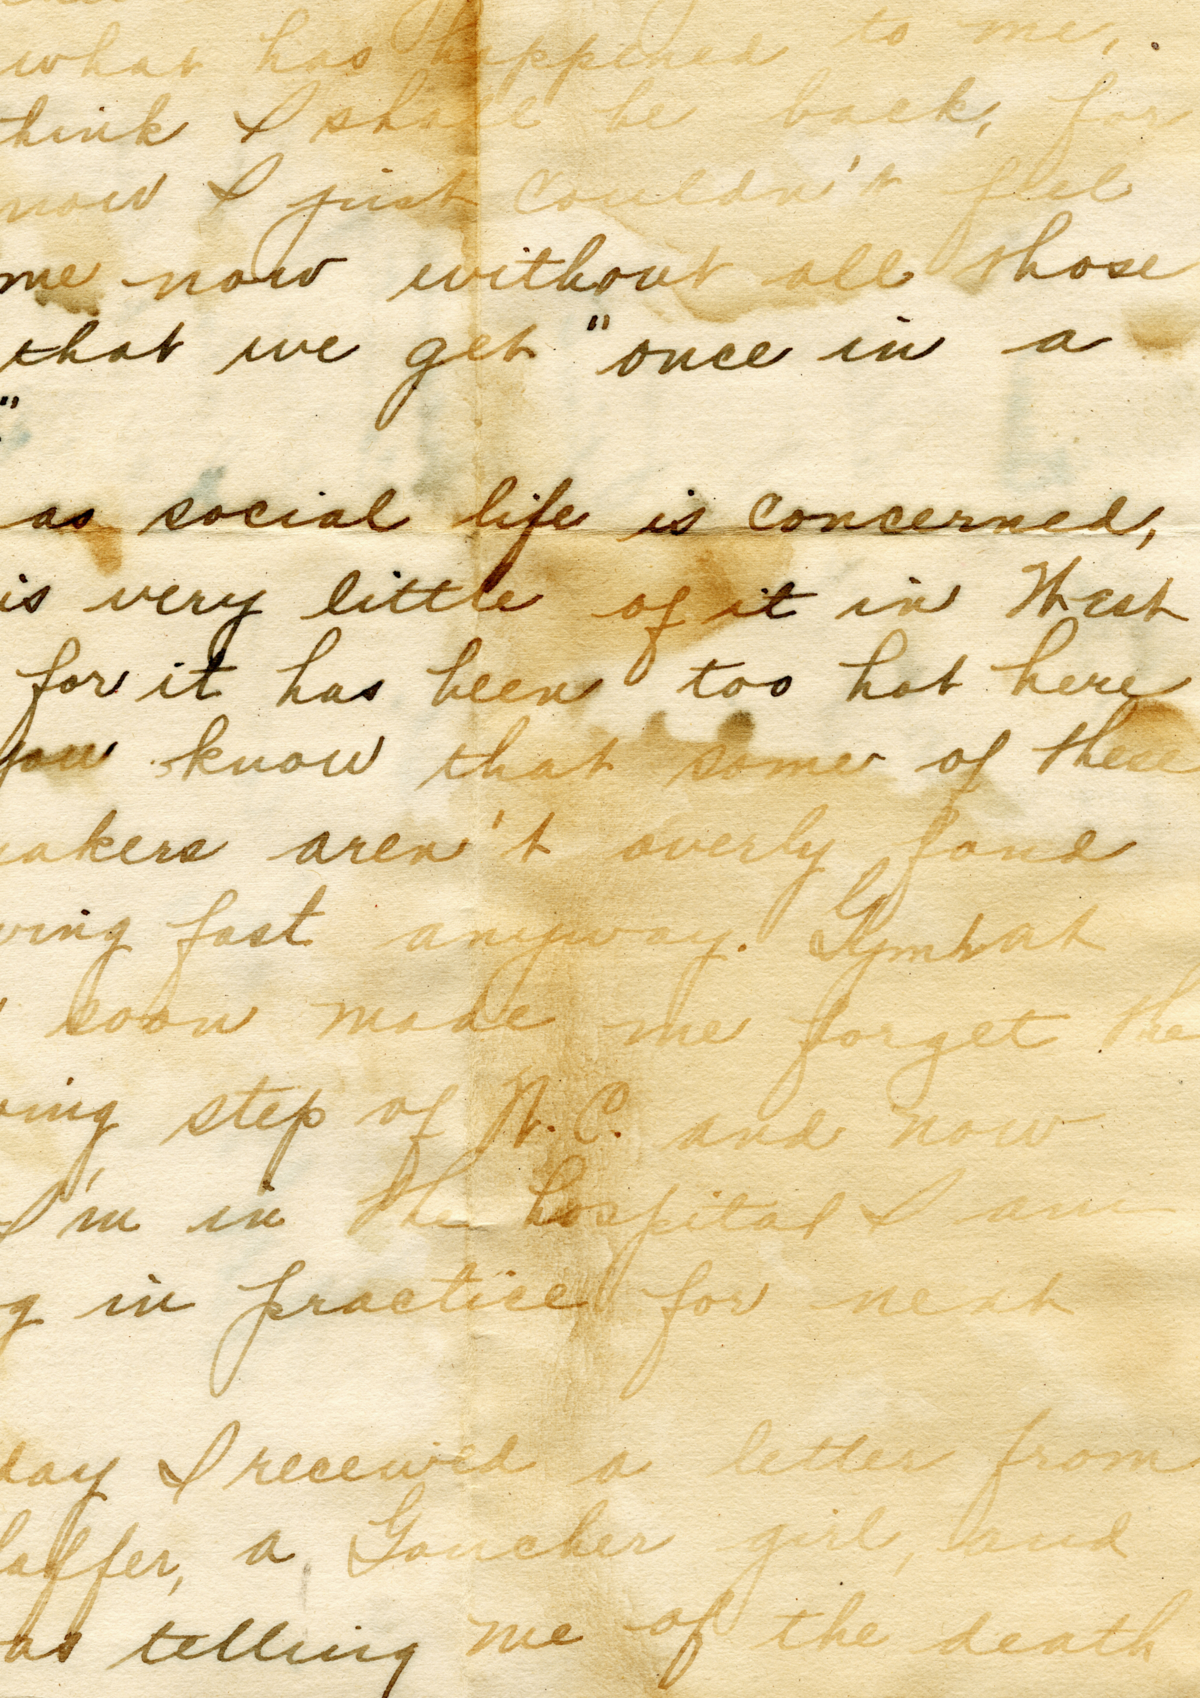 what has happened to me,
think I shall be back, for
now I just couldn't feel
me now without all those
that we get "once in a
"
as social life is concerned,
is very little of it in West
for it has been too hot here
you know that some of these
akers aren't overly fond
ving fast anyway. at
soon made me forget the
ing step of N.C. and now
I'm in the hospital I am
g in practice for neat
day I received a letter from
haffer, a Goucher girl, and
as telling me of the death